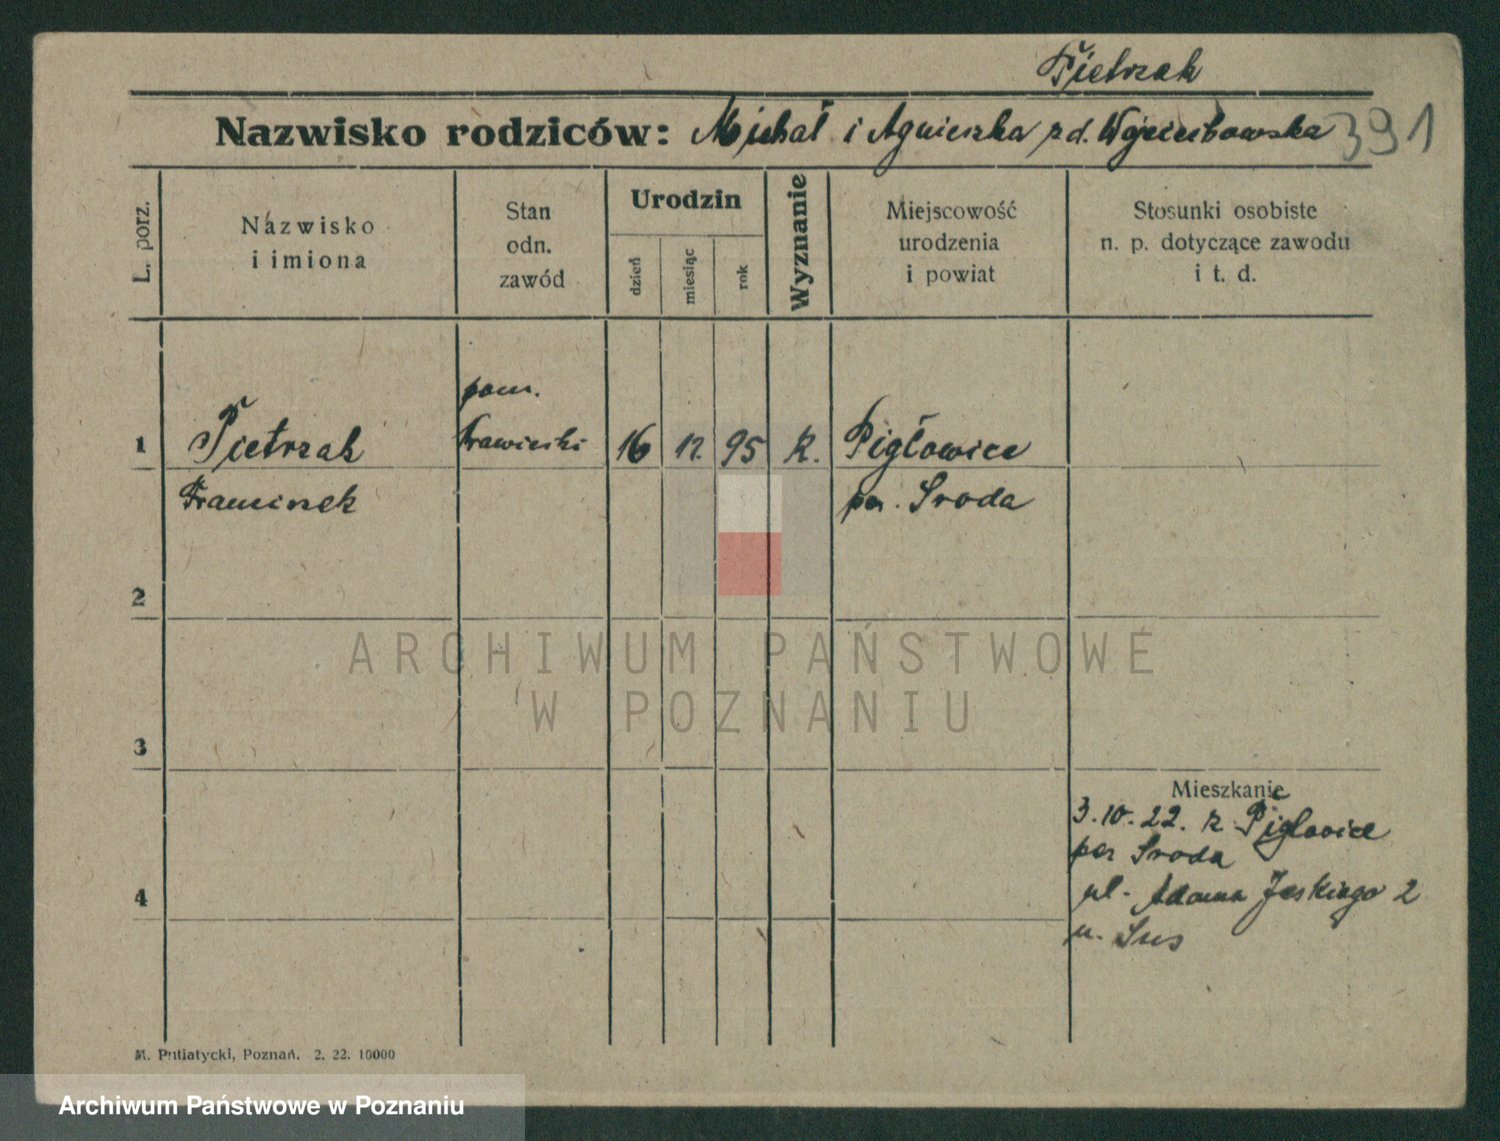 Pietrzak
Nazwisko rodziców: Michał i Agnieszka z d. Wojciechowska 391
L. porz.
Nazwisko
i imiona
Stan
odn.
zawód
Urodzin
dzień
miesiąc
rok
Wyznanie
Miejscowość
urodzenia
i powiat
Stosunki osobiste
n. p. dotyczące zawodu
i t. d.
pom.
1 Pietrzak krawiecki 16 12. 95 K. Pigłowice
Franciszek pow. Sroda
2
ARCHIWUM PAŃSTWOWE
W POZNANIU
3
Mieszkanie
3.10.22. z Piglowice
pow Sroda
4
ul. Adama Jeskiego 2
u. Sus
M. Putiatycki, Poznań. 2. 22. 10000
Archiwum Państwowe w Poznaniu